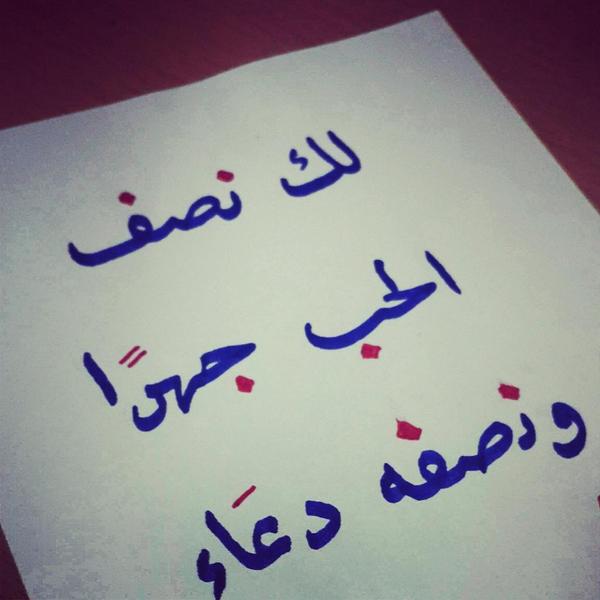 لك نصف
الحب جهرًا
ونصفه دعَاء